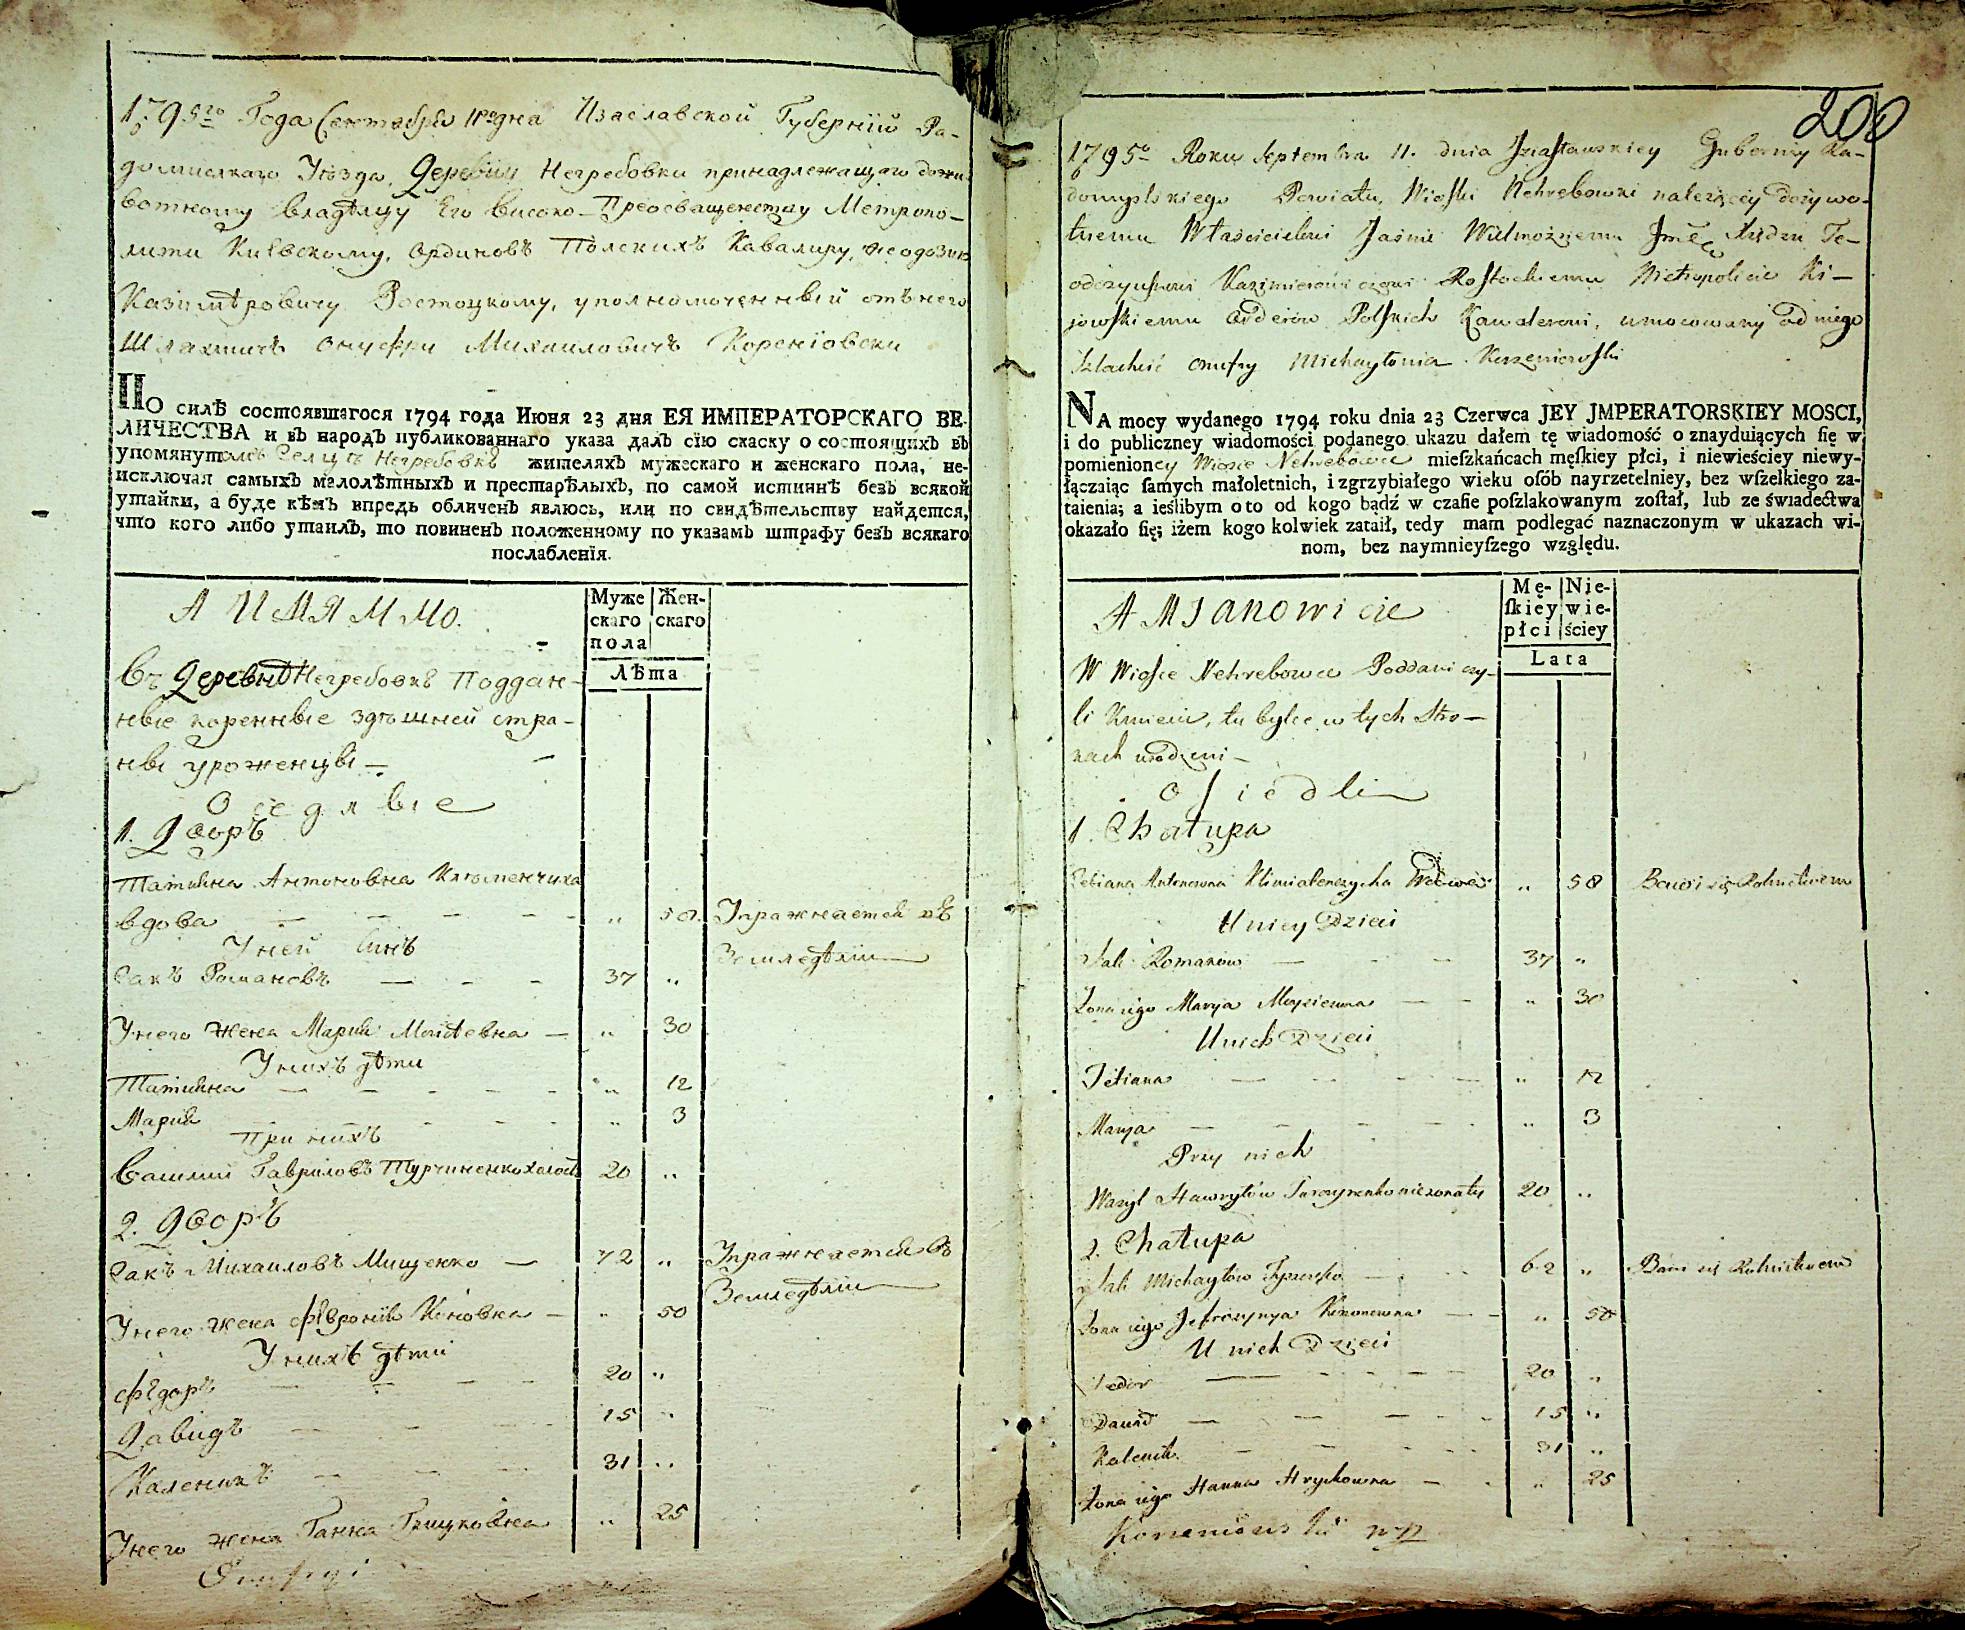 1795го Года Сентября 11го дня Изаславской Губернїи Ра-
домислкаго Уѣзда, Деревни Негребовки принадлежащаго дожи-
вотному владѣлцу Его високо-Преосвященству Метропо-
лити Киевскому, ординовъ Полскихъ Кавалиру, Феодозию
Казимѣровичу Ростоцкому, уполномоченный отъ него
Шляхтичъ Онуфри Михаиловичъ Коренїовски
По силѣ состоявшагося 1794 года Июня 23 дня ЕЯ ИМПЕРАТОРСКАГО ВЕ-
ЛИЧЕСТВА и въ народъ публикованнаго указа далъ сїю скаску о состоящихъ въ
упомянутомъ Селцѣ Негребовкѣ жителяхъ мужескаго и женскаго пола, не-
исключая самыхъ малолѣтныхъ и престарѣлыхъ, по самой истиннѣ безъ всякой
утайки, а буде кѣмъ впредь обличенъ явлюсь, или по свидѣтельству найдется,
что кого либо утаилъ, то повиненъ положенному по указамъ штрафу безъ всякаго
послабленїя.
А ИМЯММО.
Муже
скаго
пола
Жен-
скаго
Лѣта
Въ Деревнѣ Негребовкѣ Поддан-
ные коренные здѣшней стра-
ны уроженцы
Оседлые
1. Дворъ
Татияна Антоновна Клименчиха
вдова " 58. Упражняется въ
Земледѣлии
У ней Синъ
Сакъ Романовъ 37 "
У него жена Мария Моисеевна " 30
У нихъ дѣти
Татияна " 12
Мария " 3
При нихъ
Василий Гавриловъ Турчиненко холостъ 20 "
2. Дворъ
Сакъ Михаиловъ Мищенко 72 " Упражняется въ
Земледѣлии
У него жена Феврония Коновна " 50
У нихъ дѣти
Федоръ 20 "
Давидъ 15 "
Каленикъ 31 "
У него жена Ганна Грицковна " 25
Onufryi
200
1795o Roku Septembra 11. dnia Iziasławskiey Guberny Ra-
domyslskiego Powiatu, Wioski Nehrebowki należącey dożywo-
tniemu Właścicielowi Jaśnie Wielmożnemu Jmć Xiędzu Te-
odozyuszowi Kazimierowiczowi Rostockiemu Metropolicie Ki-
jowskiemu Orderów Polskich Kawalerowi, umocowany od niego
Szlachcic Onufry Michayłowicz Korzeniowski
NA mocy wydanego 1794 roku dnia 23 Czerwca JEY JMPERATORSKIEY MOSCI,
i do publiczney wiadomości podanego ukazu dałem tę wiadomość o znayduiących ſię w
pomienioney Wiosce Nehrebowce mieſzkańcach męſkiey płci, i niewieściey niewy-
łączaiąc ſamych małoletnich, i zgrzybiałego wieku oſób nayrzetelniey, bez wſzelkiego za-
taienia; a ieślibym oto od kogo bądź w czaſie poſzlakowanym zoſtał, lub ze świadectwa
okazało ſię; iżem kogo kolwiek zataił, tedy mam podlegać naznaczonym w ukazach wi-
nom, bez naymnieyſzego względu.
A MIANOWICIE
Mę-
ſkiey
płci
Nie-
wie-
ściey
Lata
W Wiosce Nehrebowce Poddani czy-
li Kmiecie, tu bylce w tych stro-
nach urodzeni
Osiedli
1. Chałupa
Tetiana Antonowna Klimialenczycha Wdowa " 58 Bawi się Rolnictwem
U niey Dzieci
Sak Romanow 37 "
Żona iego Marya Moyziewna " 30
U nich Dzieci
Tetiana " 12
Marya " 3
Przy nich
Wasyl Hawryłów Turczynenko nieżonaty 20 "
2. Chałupa
Sak Michayłow 62 " Bawi się Rolnictwem
Żona iego Kononowna " 50
U nich Dzieci
Fedor 20 "
Dawid 15 "
Kalenik 31 "
Żona iego Hanna Hryckowna " 25
Korzeniowski mp